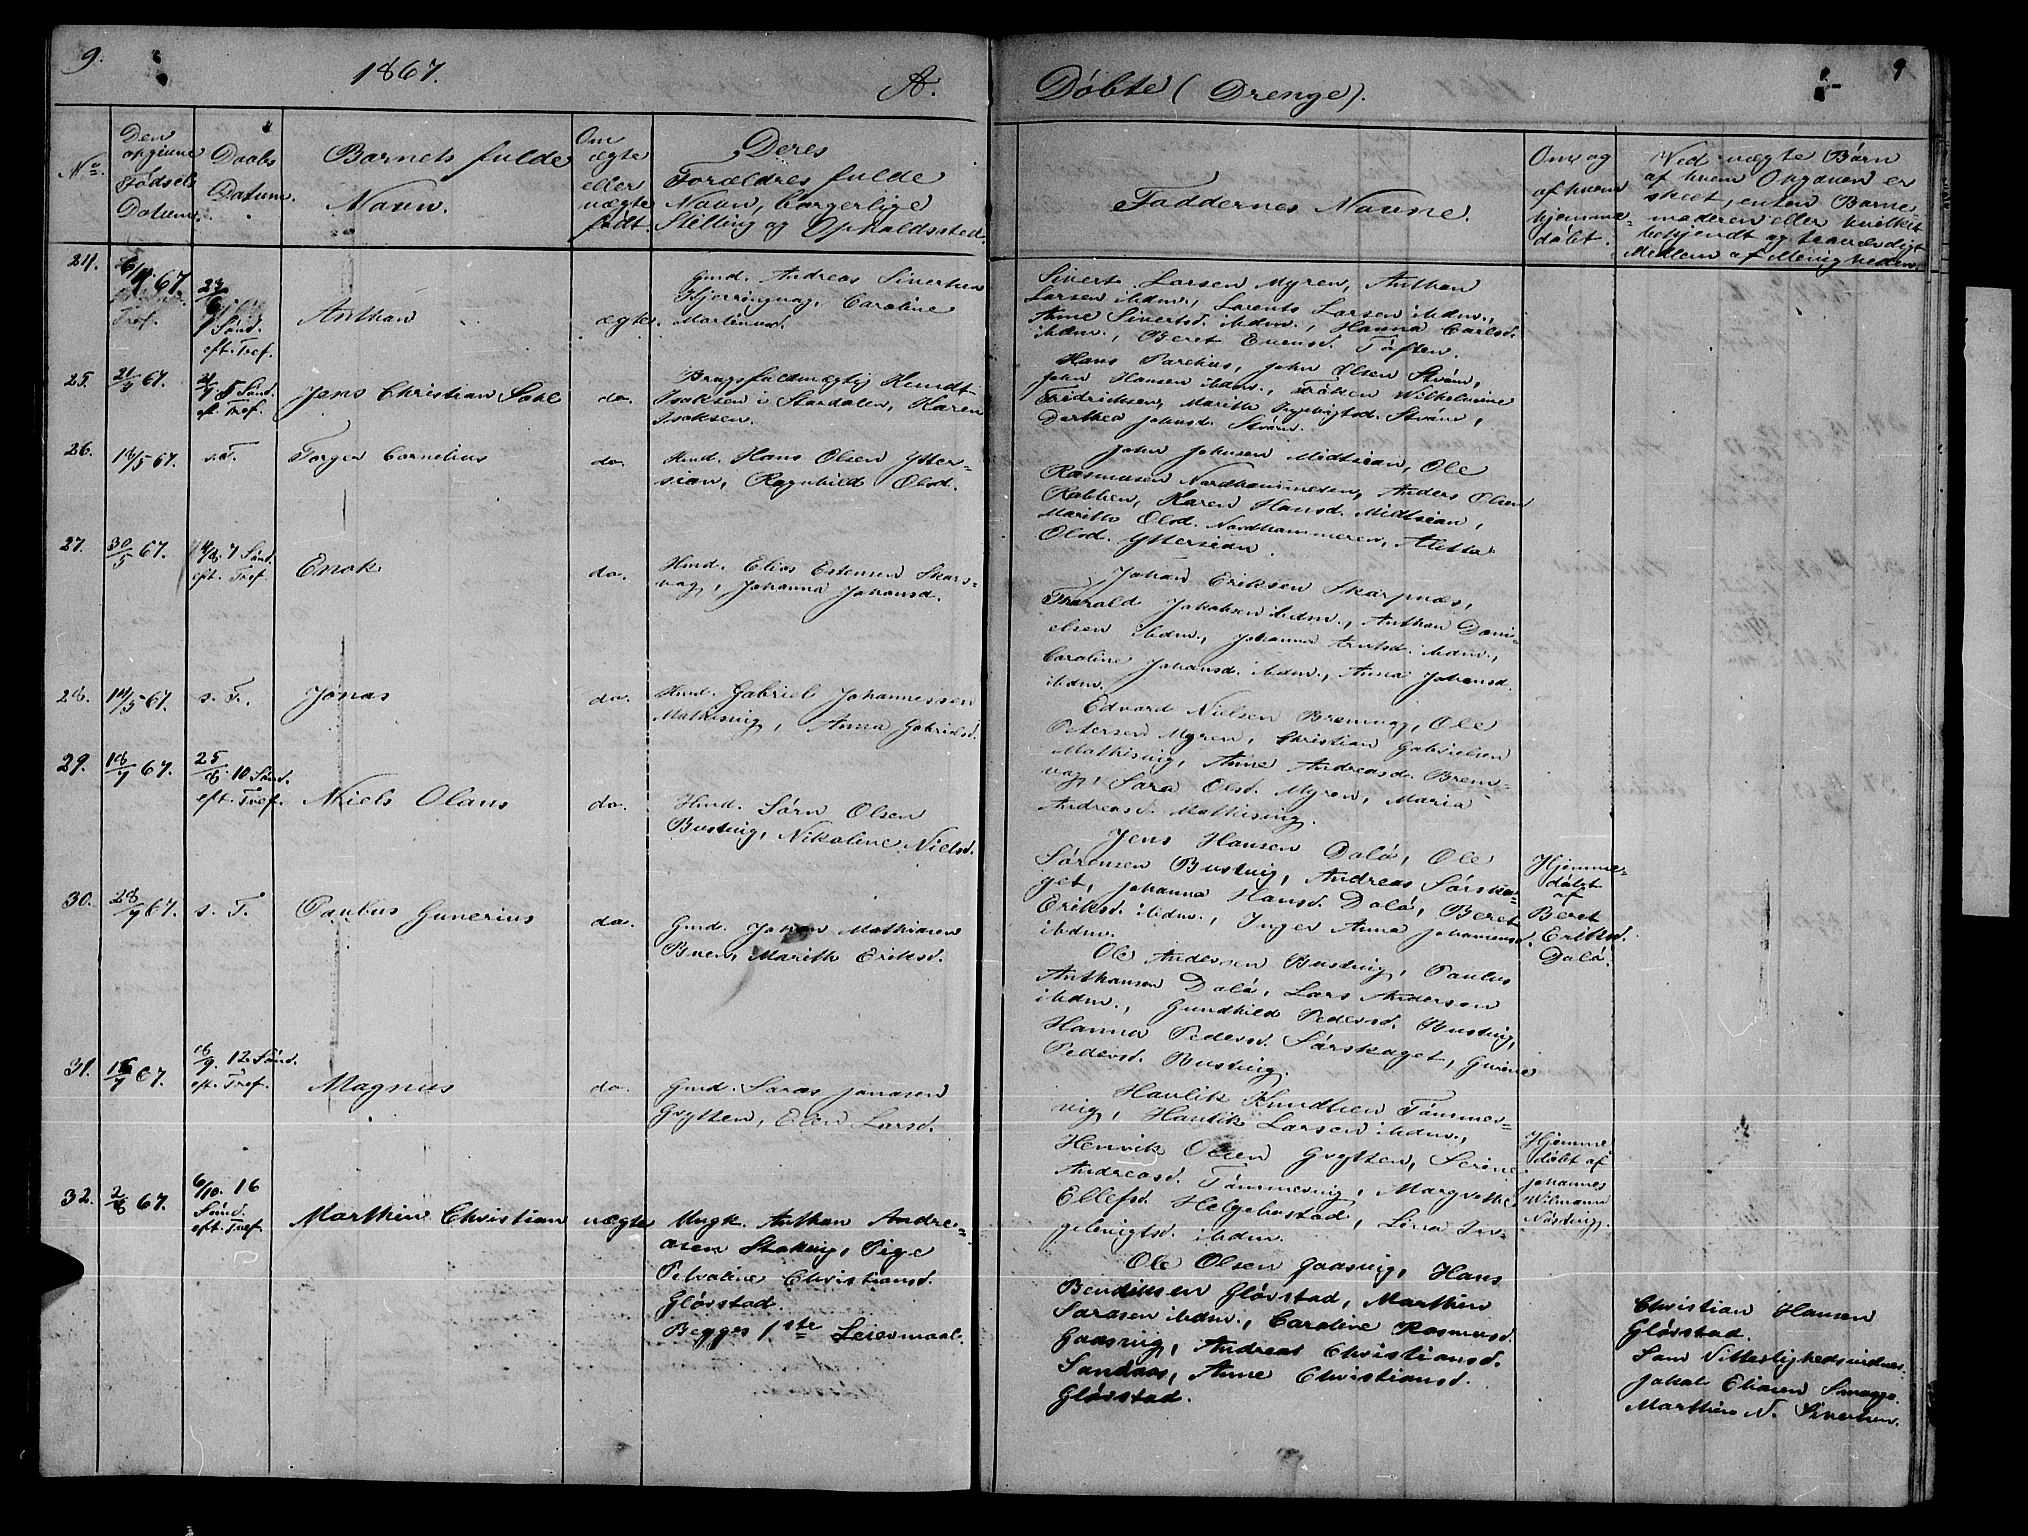 9.
1867.
A.
Døbte (Drenge).
9
No
Den
opgivne
Fødsels
Datum.
Daabs
Datum.
Barnets fulde
Navn.
Om
ægte
eller
uægte
født.
Deres
Forældres fulde
Navn, borgerlige
Stilling og Opholdssted.
Faddernes Navne.
Om og
af hvem
hjemme-
døbt.
Ved uægte Børn
af hvem Opgaven er
skeet, enten Barne-
moderen eller hvilket
bekjendt og troværdigt
Medlem af Menigheden.
24.
67.
Tref.
23/6
Sønd.
eft. Tref.
Anthon
ægte
Gmd. Andreas Sivertsen
Kjerringvag, Caroline
Martinusd.
Sivert Larsen Myren, Anthon
Larsen ibdm., Lorents Larsen ibdm.,
Anne Sivertsd. ibdm., Hanna Carlsd.
ibdm., Beret Evensd. Toften.
25.
21/3 67.
21/7 5 Sønd.
eft. Tref.
Jens Christian Dahl
do.
Brugsfuldmægtig Knudt
Isaksen i Stordalen, Karen
Isaksen.
Hans Parelius, John Olsen Strøm,
John Hansen ibdm., Frøken Wilhelmine
Fredriksen, Marith Ingebrigtsd. Strøm,
Dorthea Johnsd. Strøm.
26.
18/5 67.
s. T.
Torger Cornelius
do.
Hmd. Hans Olsen Ytter-
sian, Ragnhild Olsd.
John Johnsen Midtsian, Ole
Rasmussen Nordhammeren, Anders Olsen
Rabben, Karen Hansd. Midtsian,
Marith Olsd. Nordhammeren, Aletta
Olsd. Yttersian.
27.
30/5 67.
4/8 7 Sønd.
eft. Tref.
Enok
do.
Hmd. Elias Estensen Skars-
vag, Johanna Johansd.
Johan Eriksen Skarpnæs,
Tharald Jakobsen ibdm., Anthon Dani-
elsen ibdm., Johanna Arntsd. ibdm.,
Caroline Johansd. ibdm., Anna Johansd.
ibdm.
28.
14/5 67.
s. T.
Jonas
do.
Hmd. Gabriel Johannessen
Mathisvig, Anna Gabrielsd.
Edvard Nielsen Bremvag, Ole
Petersen Myren, Christian Gabrielsen
Mathisvig, Anne Andreasd. Brem-
vag, Sara Olsd. Myren, Maria
Andreasd. Mathisvig.
29.
18/7 67.
25/8. 10 Sønd.
eft. Tref.
Niels Olaus
do.
Hmd. Sørn Olsen
Bustvig, Nikoline Nielsd.
Jens Hansen Dolø, Ole
Sørensen Bustvig, Andreas Sørska-
get, Johanna Hansd. Dolø, Beret
Eriksd. ibdm., Inger Anna Johannesd.
ibdm.
Hjemme-
døbt
af
Beret
Eriksd.
Dolø.
30.
28/7 67.
s. T.
Paulus Gunerius
do.
Gmd. Johan Mathiasen
Buen, Marith Eriksd.
Ole Andersen Bustvig, Paulus
Anthonsen Dolø, Lars Andersen
ibdm., Gundhild Pedersd. Bustvig,
Hanna Pedersd. Sørskaget, Gurine
Pedersd. Bustvig.
31.
16/7 67.
8/9. 12 Sønd.
eft. Tref.
Magnus
do.
Gmd. Saras Jonasen
Grytten, Elen Larsd.
Havlik Knudtsen Tømmer-
vig, Havlik Larsen ibdm.,
Henrik Olsen Grytten, Serine
Andreasd. Tømmervig, Margrethe
Ellefsd. Helgebostad, Lina In-
gebrigtsd. ibdm.
Hjemme
døbt af
Johannes
Wilmann
Nordvig.
32.
2/8 67.
6/10. 16
Sønd.
eft. Tref.
Marthin Christian
uægte
Ungk. Anthon Andre-
asen Stakvig, Pige
Petroline Christiansd.
Glørstad.
Begges 1ste Leiermaal.
Ole Olsen Gaasvig, Hans
Bendiksen Glørstad, Marthin
Sarasen ibdm., Caroline Rasmusd.
Gaasvig, Andrea Christiansd.
Sandaas, Anne Christiansd.
Glørstad.
Christian Hansen
Glørstad.
Som Vitterlighedsvidner
Jakob Eliasen Smaage
Marthin N. Sivertsen.